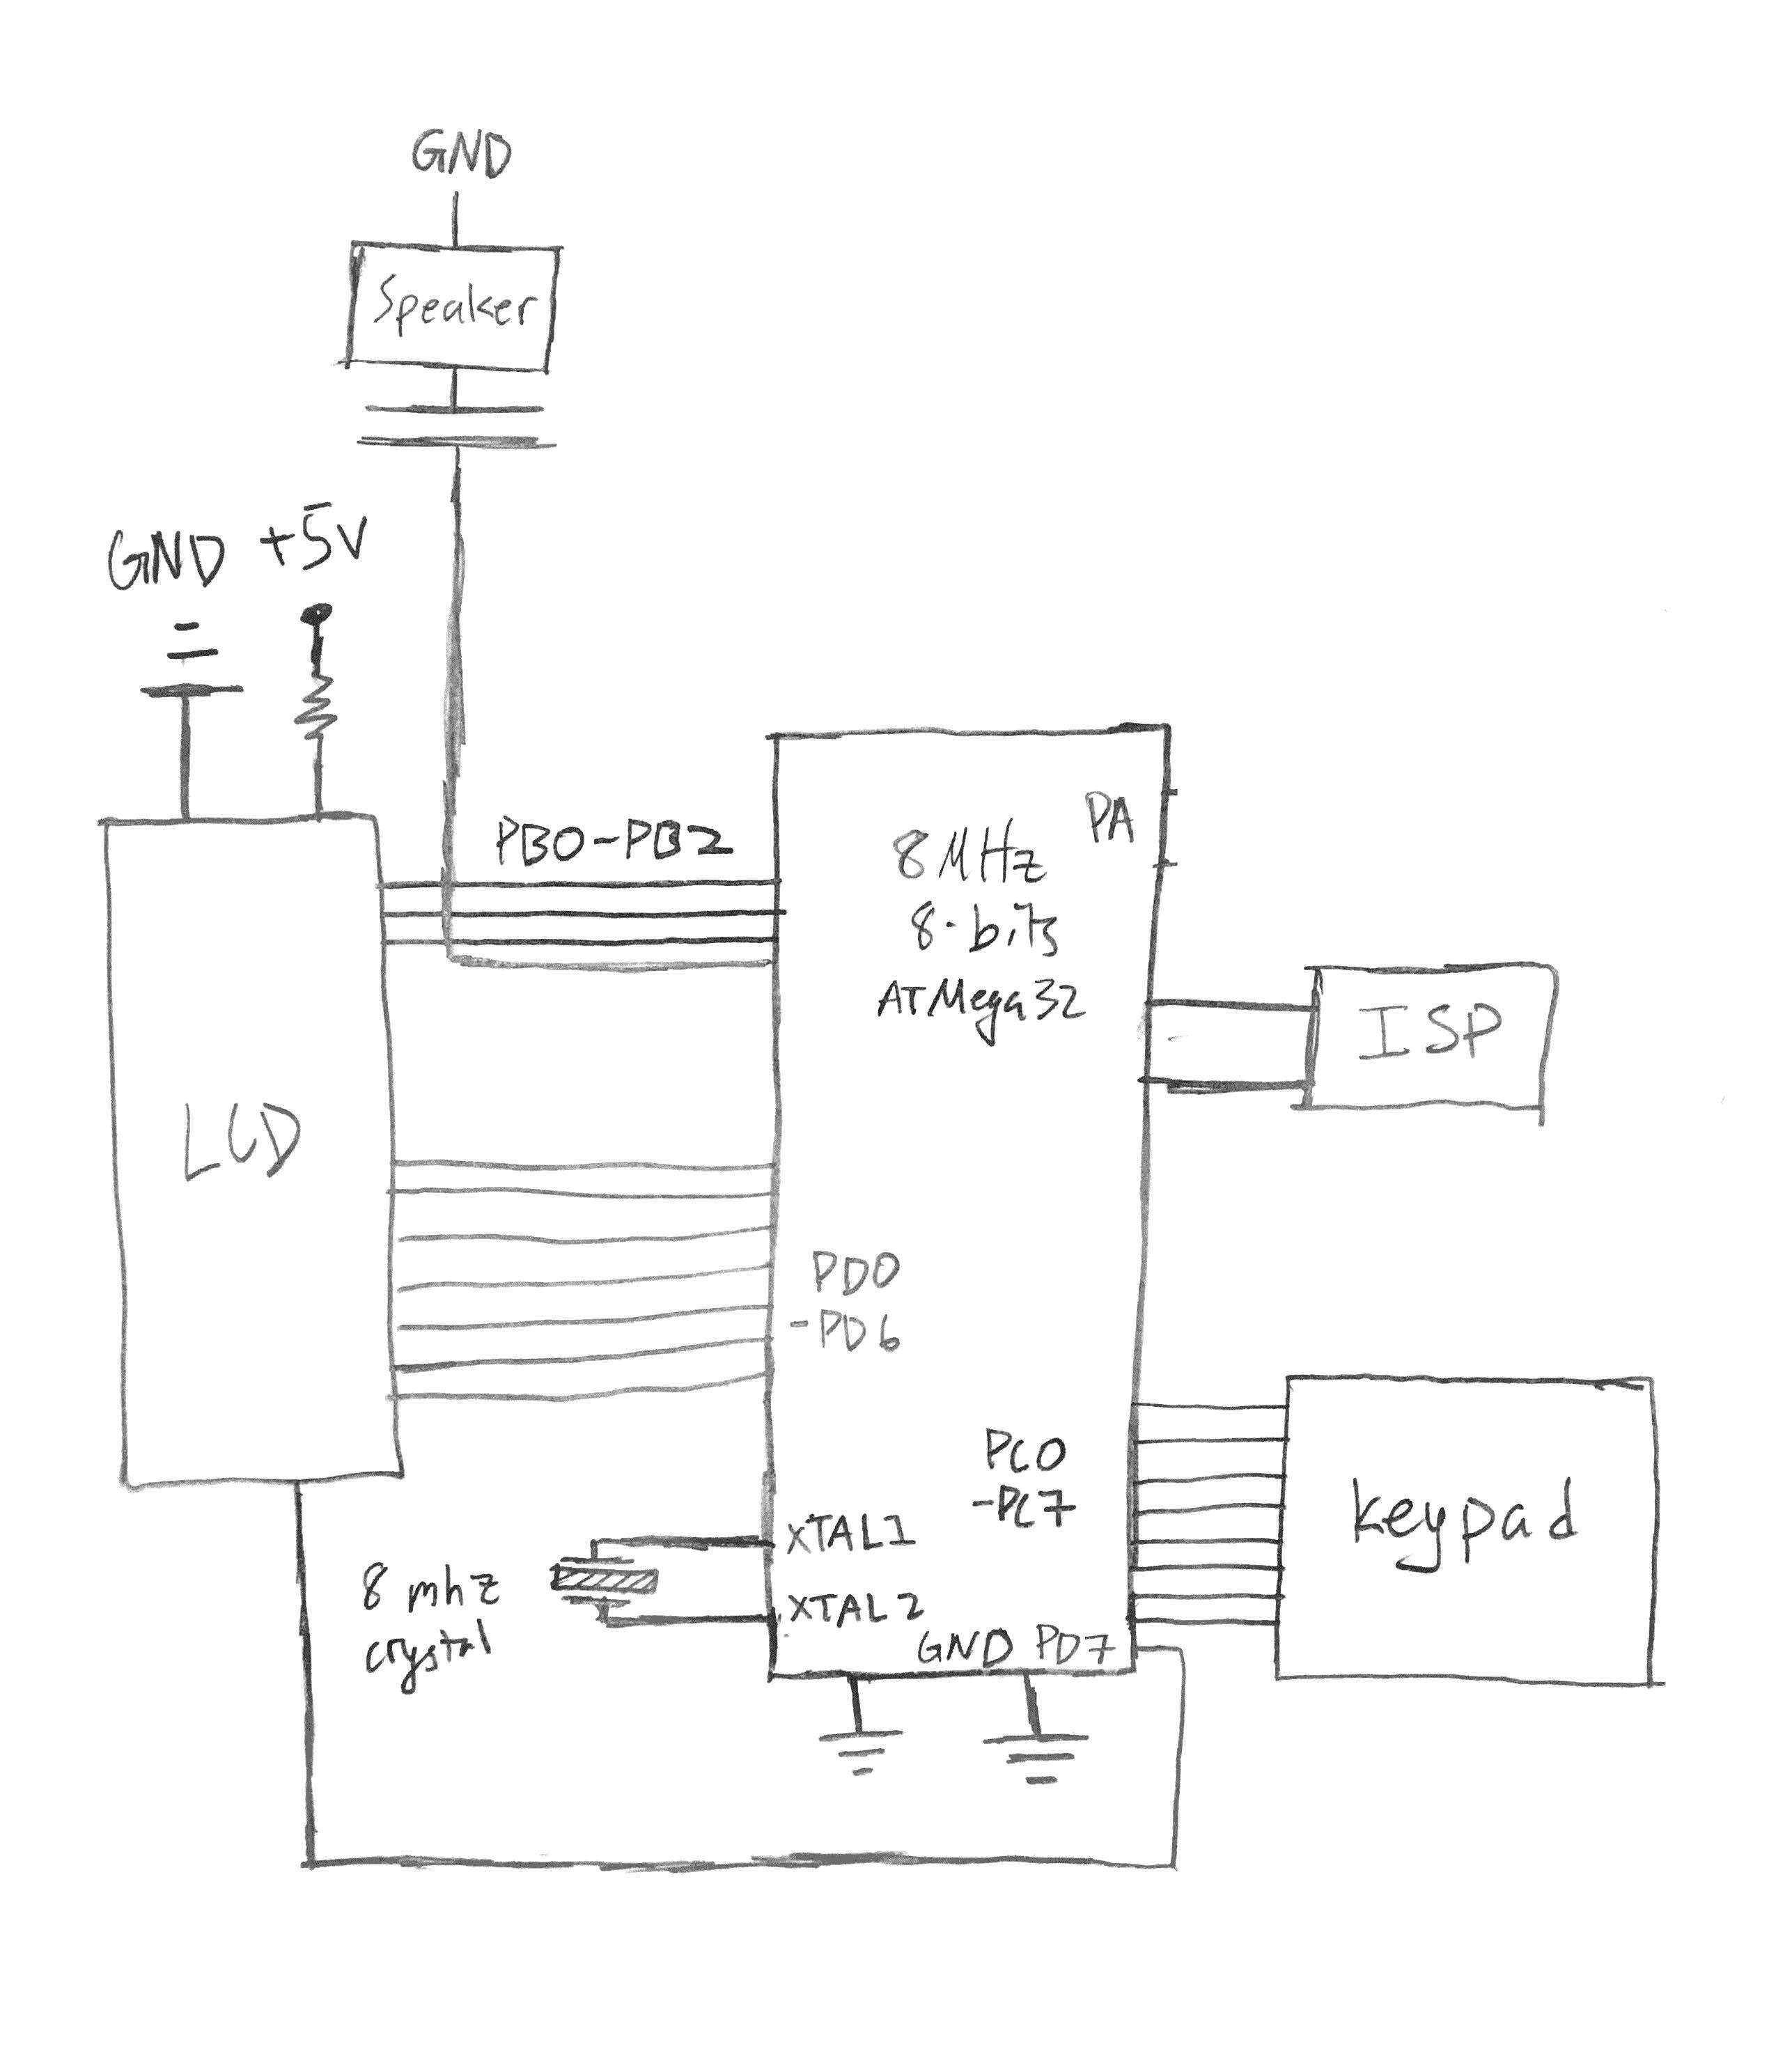 GND
Speaker
GND +5V
PB0-PB2
PA
8MHz
8-bits
ATMega32
ISP
LCD
PD0
-PD6
PC0
-PC7
keypad
XTAL1
8 mhz
crystal
XTAL2
GND PD7